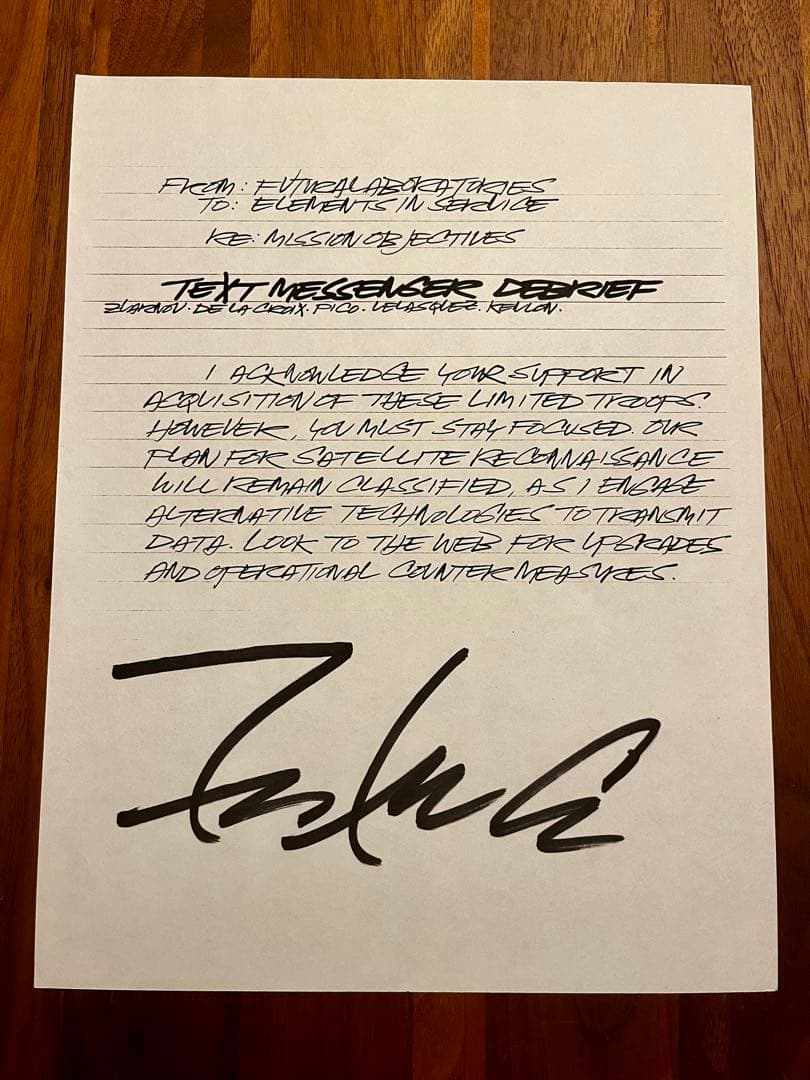 FROM: FUTURA LABORATORIES
TO: ELEMENTS IN SERVICE
RE: MISSION OBJECTIVES
TEXT MESSENGER DEBRIEF
ZLARNOV. DE LA CROIX. PICO. VELASQUEZ. KEVLON.
I ACKNOWLEDGE YOUR SUPPORT IN
ACQUISITION OF THESE LIMITED TROOPS.
HOWEVER, YOU MUST STAY FOCUSED. OUR
PLAN FOR SATELLITE RECONNAISSANCE
WILL REMAIN CLASSIFIED, AS I ENGAGE
ALTERNATIVE TECHNOLOGIES TO TRANSMIT
DATA. LOOK TO THE WEB FOR UPGRADES
AND OPERATIONAL COUNTER MEASURES.